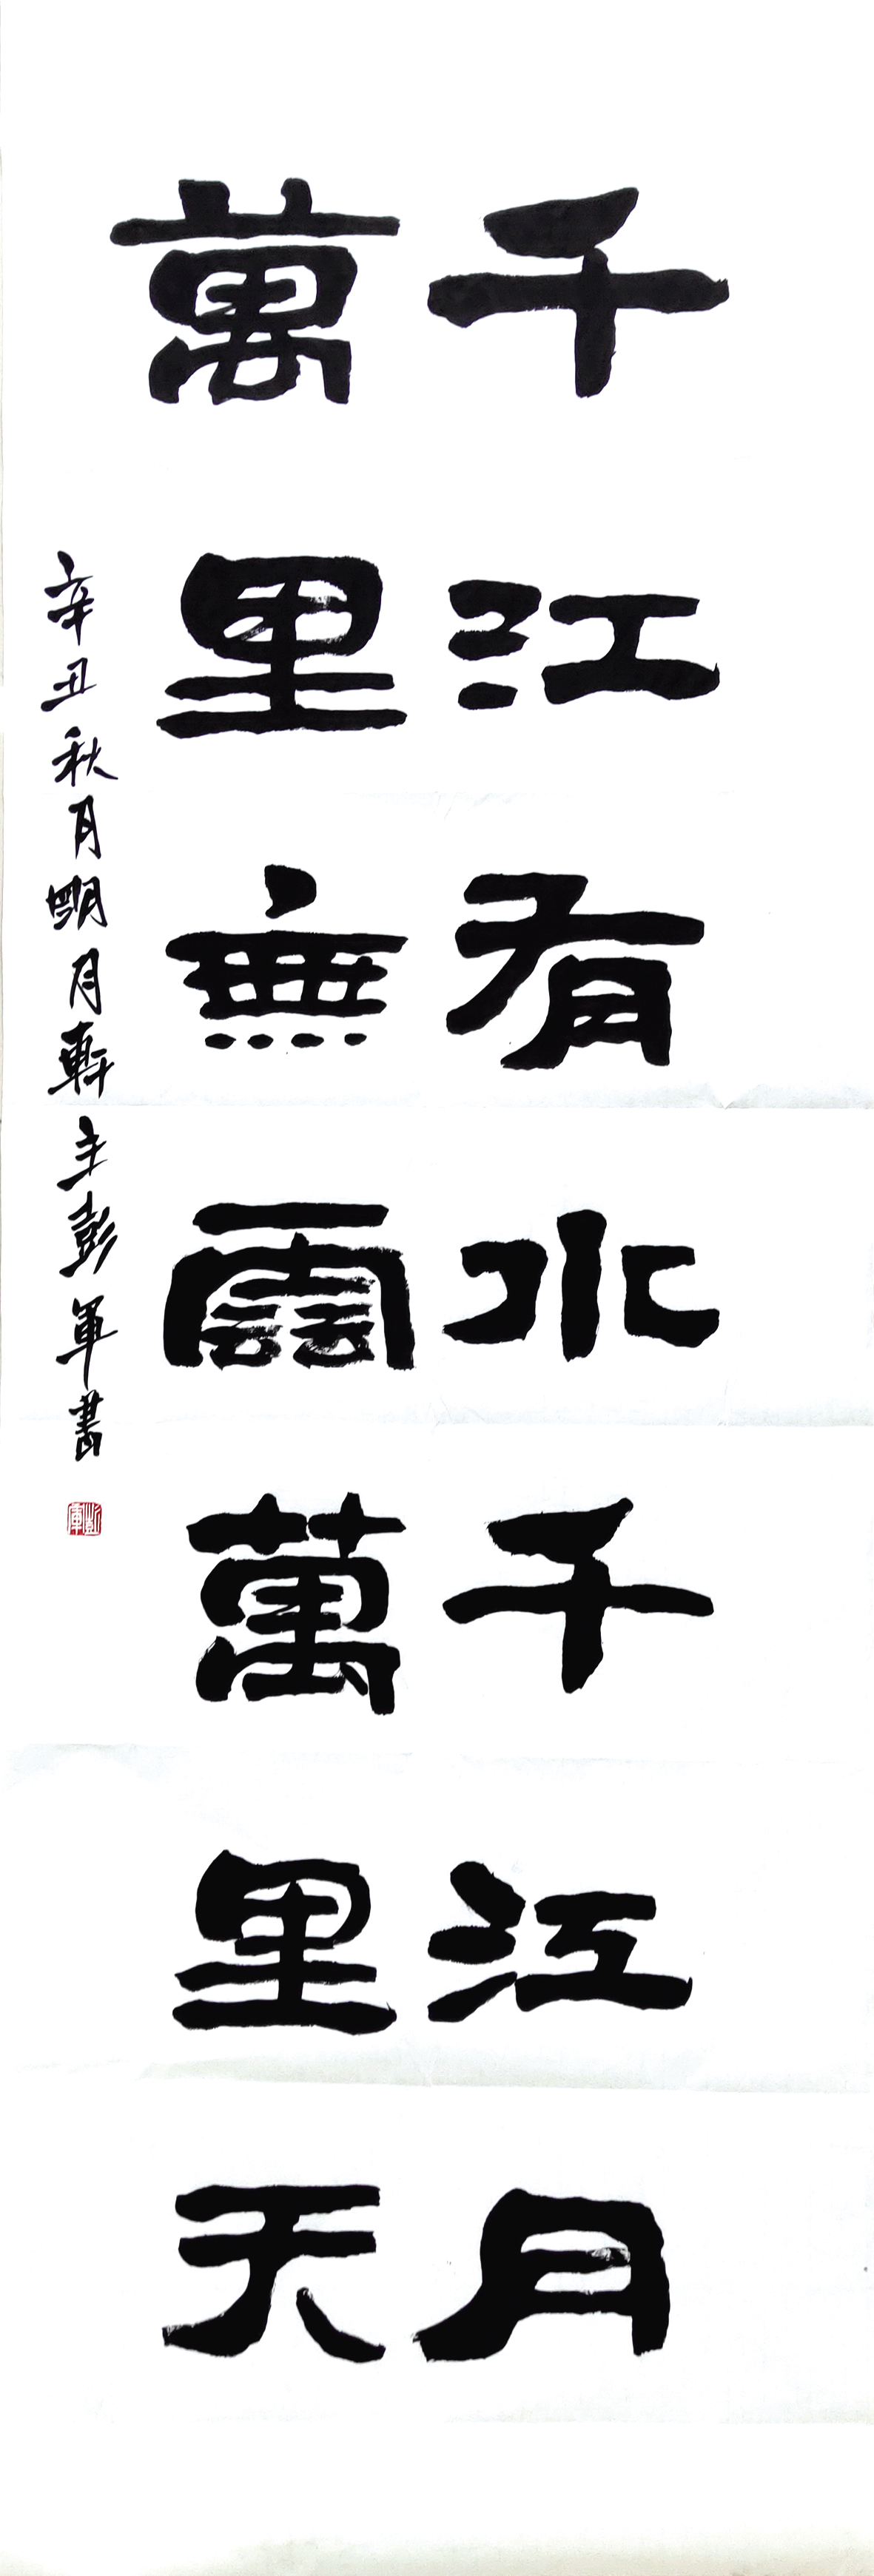 千江有水千江月
萬里無雲萬里天
辛丑秋月明月軒主彭軍書
彭軍